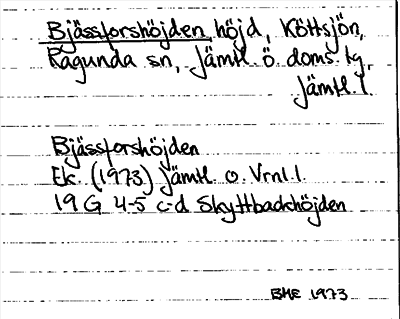 Bjässforshöjden, höjd, Köttsjön,
Ragunda sn, Jämtl. ö. doms. tg,
Jämtl. l.
Bjässforshöjden
Ek. (1973) Jämtl. o. Vrnl. l.
19 G 4-5 c-d Skyttbackhöjden
BME 1973